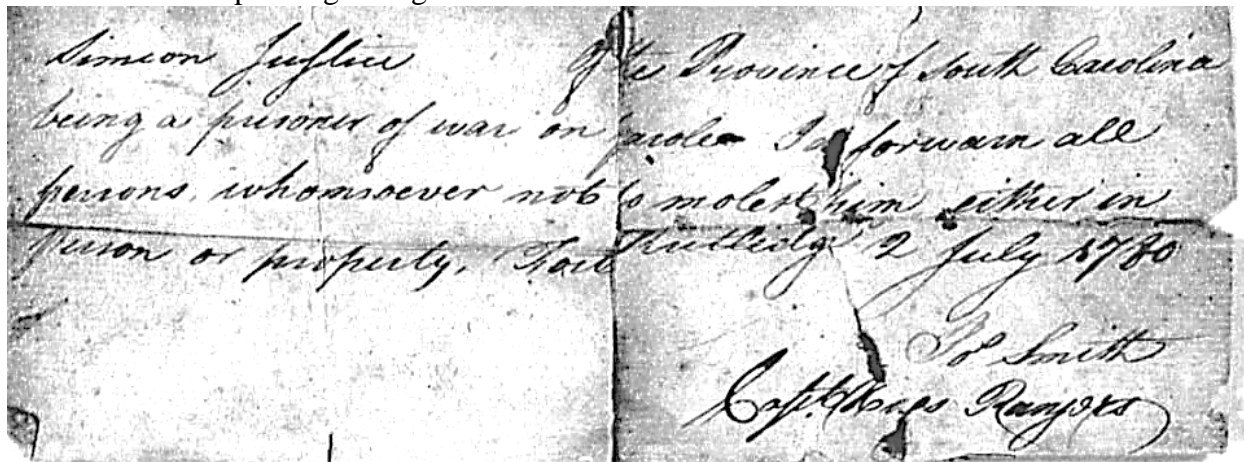 Simeon Justice Of the Province of South Carolina
being a prisoner of war on parole I do forwarn all
persons, whomsoever not to molest him either in
person or property. Fort Rutledge 2 July 1780
Smith
Capt. Kings Rangers